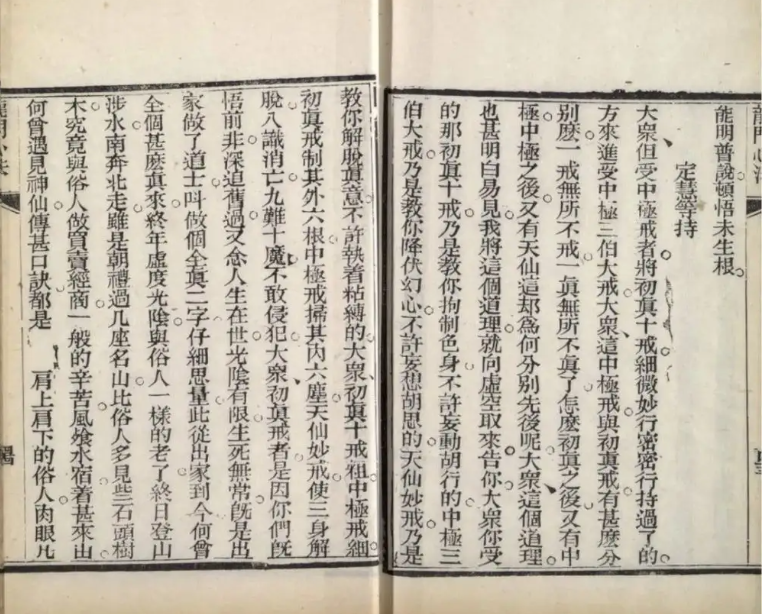 龍門心法
能明普說頓悟未生根
定慧等持
大衆但受中極戒者將初眞十戒細微妙行密密行持過了的
方來進受中極三伯大戒大衆這中極戒與初眞戒有甚麽分
別麽一戒無所不戒一眞無所不眞了怎麽初眞之後又有中
極中極之後又有天仙這却爲何分別先後呢大衆這個道理
也甚明白易見我將這個道理就向虛空取來告你大衆你受
的那初眞十戒乃是教你拘制色身不許妄動胡行的中極三
伯大戒乃是教你降伏幻心不許妄想胡思的天仙妙戒乃是
教你解脫眞意不許執着枯縛的大衆初眞十戒粗中極戒細
初眞戒制其外六根中極戒掃其內六塵天仙妙戒使三身解
脫八識消亡九難十魔不敢侵犯大衆初眞戒者是因你們旣
悟前非深追舊過又念人生在世光陰有限生死無常旣是出
家做了道士呌做個全眞二字仔細思量此從出家到今何曾
全個甚麽眞來終年虛度光陰與俗人一樣的老了終日登山
涉水南奔北走雖是朝禮過几座名山比俗人多見些石頭樹
木究竟與俗人做買賣經商一般的辛苦風飡水宿着甚來由
何曾遇見神仙傳甚口訣都是 肩上肩下的俗人肉眼凡
龍門心法